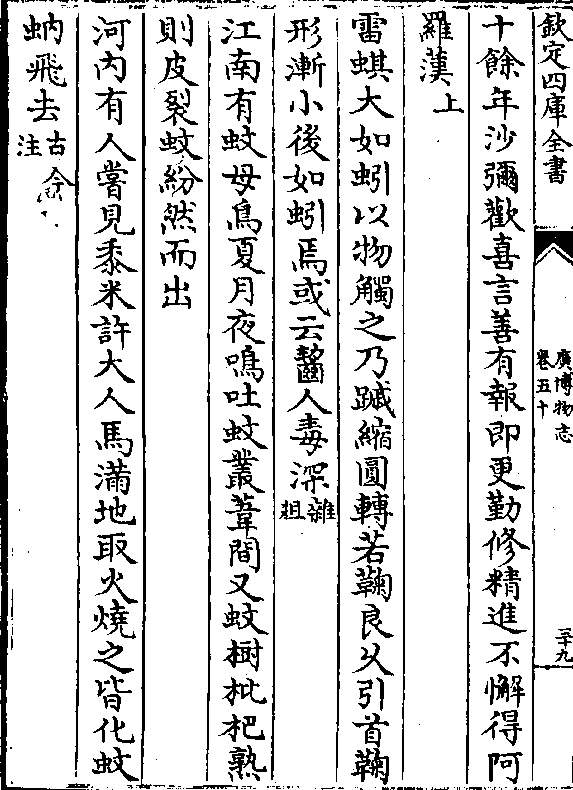 欽定四庫全書
廣博物志
卷五十
三十九
十餘年沙彌歡喜言善有報即更勤修精進不懈得阿
羅漢上
雷蜞大如蚓以物觸之乃蹙縮圓轉若鞠良久引首鞠
形漸小後如蚓焉或云齧人毒深雜俎
江南有蚊母鳥夏月夜鳴吐蚊叢葦間又蚊樹枇杷熟
則皮裂蚊紛然而出
河內有人嘗見黍米許大人馬滿地取火燒之皆化蚊
蚋飛去古今注